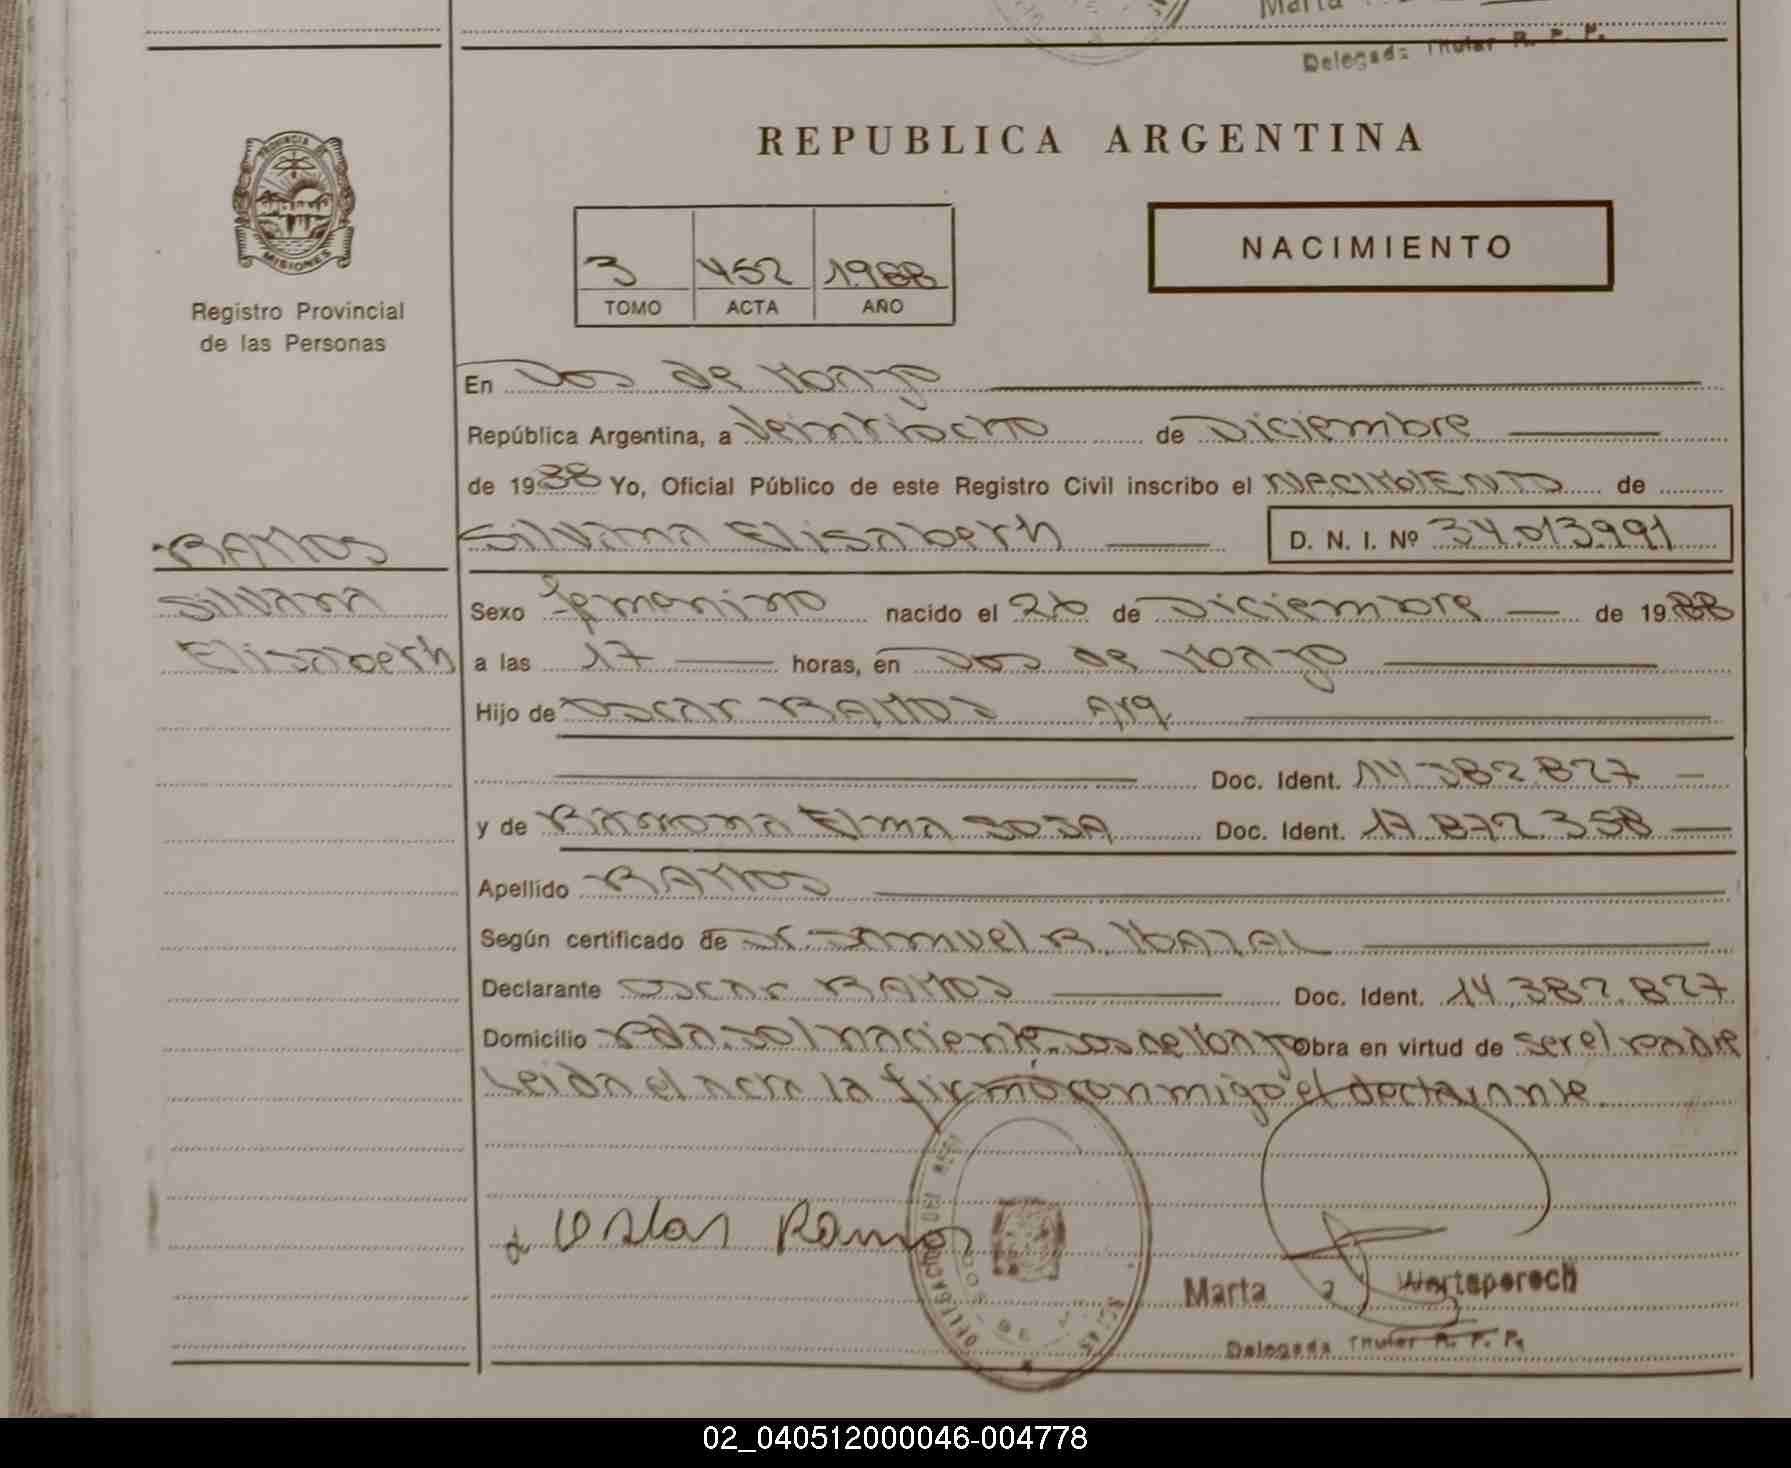 Marta
Delegada Titular R. P. P.
PROVINCIA DE
MISIONES
Registro Provincial
de las Personas
REPUBLICA ARGENTINA
NACIMIENTO
3 452 1988
TOMO ACTA AÑO
En Dos de Mayo
República Argentina, a Veintiocho de Diciembre
de 1988 Yo, Oficial Público de este Registro Civil inscribo el NACIMIENTO de
RAMOS
Silvana Elisabeth D. N. I. Nº 34.013.991
Silvana
Elisabeth
Sexo femenino nacido el 26 de Diciembre de 1988
a las 17 horas, en Dos de Mayo
Hijo de Oscar RAMOS Arg.
Doc. Ident. 14.382.827
y de Ramona Elma SOSA Doc. Ident. 17.872.358
Apellido RAMOS
Según certificado de Dr. Samuel R.
Declarante Oscar RAMOS Doc. Ident. 14.382.827
Domicilio Pda. Sol naciente. Dos de Mayo Obra en virtud de ser el padre
Leida el acta la firmó conmigo el declarante.
Ramos
Marta
Delegada Titular R. P. P.
02_040512000046-004778